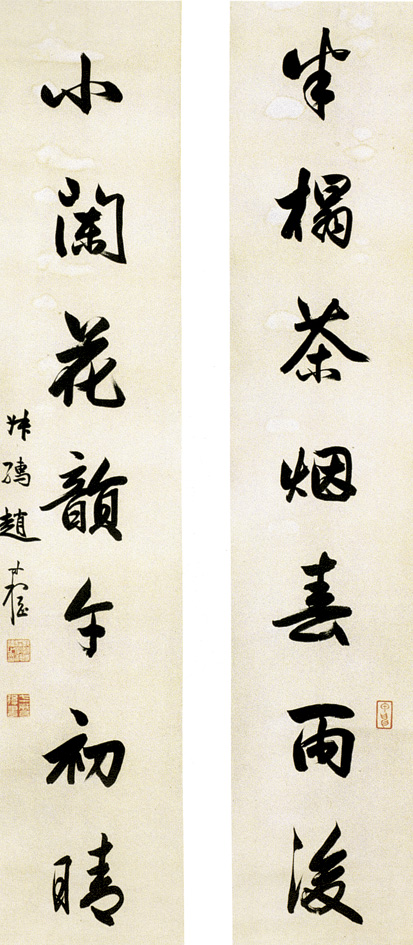 半榻茶烟春雨後
小闌花韻午初晴
趙